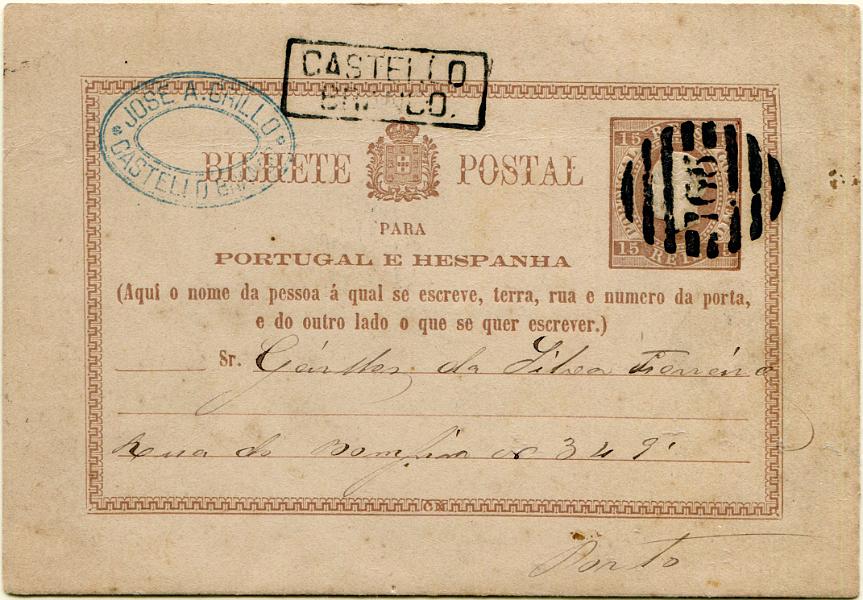 CASTELLO
BRANCO.
JOSE A. GRILLO
CASTELLO BRANCO
BILHETE POSTAL
PARA
PORTUGAL E HESPANHA
(Aqui o nome da pessoa á qual se escreve, terra, rua e numero da porta,
e do outro lado o que se quer escrever.)
15
165
15 REIS
Sr. da Silva Ferreira
Rua do Bomfim nº 349
CN
Porto